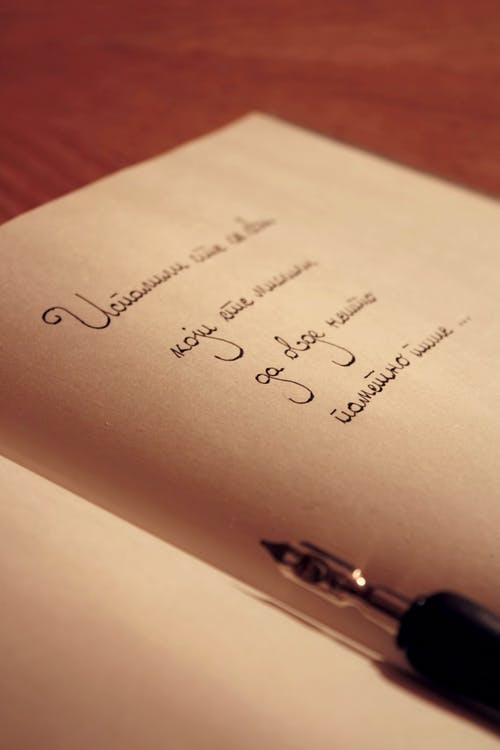 Испали сте сви
који сте мислили
да овде нешто
паметно пише...